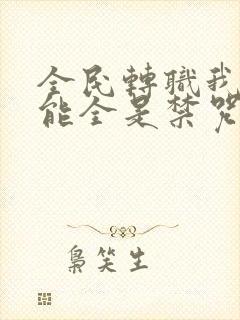 全民轉職我
能全是禁咒
梟笑生